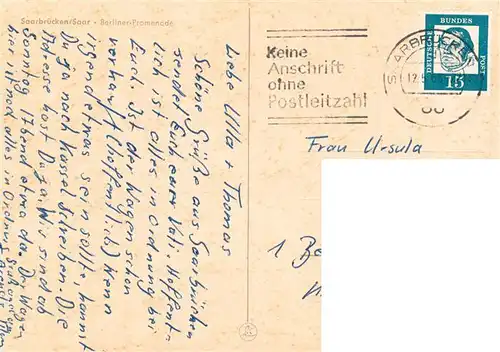 Saarbrücken/Saar · Berliner-Promenade
Liebe Ulla + Thomas
Schöne Grüße aus Saarbrücken
sendet Euch euer Vati. Hoffent-
lich ist alles in Ordnung bei
Euch. Ist der Wagen schon
verkauft (hoffentlich) wenn
irgendetwas sein sollte, kannst
Du ja nach Kassel schreiben. Die
Adresse hast Du ja. Wir sind ab
Sonntag Abend etwa da. Der Wagen
hier ist noch alles in Ordnung
Keine
Anschrift
ohne
Postleitzahl
SAARBRÜCKEN
12.
DEUTSCHE BUNDESPOST
15
Frau Ursula
1 Be